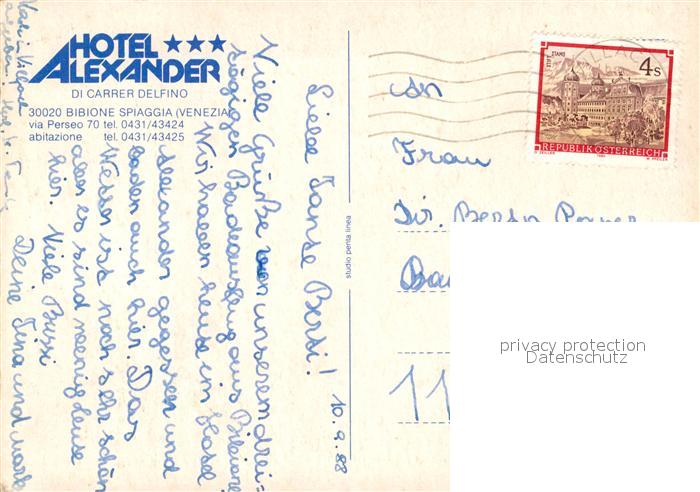 HOTEL ★★★
ALEXANDER
DI CARRER DELFINO
30020 BIBIONE SPIAGGIA (VENEZIA)
via Perseo 70 tel. 0431/43424
abitazione tel. 0431/43425
10.9.88
Liebe Tante Berti!
Viele Grüße von unserem drei=
tägigen Badeausflug aus Bibione.
Wir haben heute im Hotel
Alexander gegessen und
baden auch hier. Das
Wetter ist noch sehr schön
aber es sind wenig Leute
hier. Viele Bussi
Deine Tina und
studio penta linea
STIFT STAMS
4 S
REPUBLIK ÖSTERREICH
An
Frau
Dir. Berta
11
privacy protection
Datenschutz